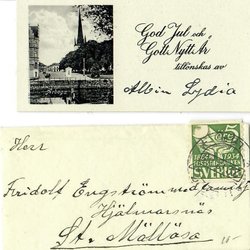 God Jul och
Gott Nytt År
tillönskas av
Albin Lydia
Herr
1884 1934
SVERIGE
Fridolf Engström med familj
Hjälmarsnäs
St. Mällösa